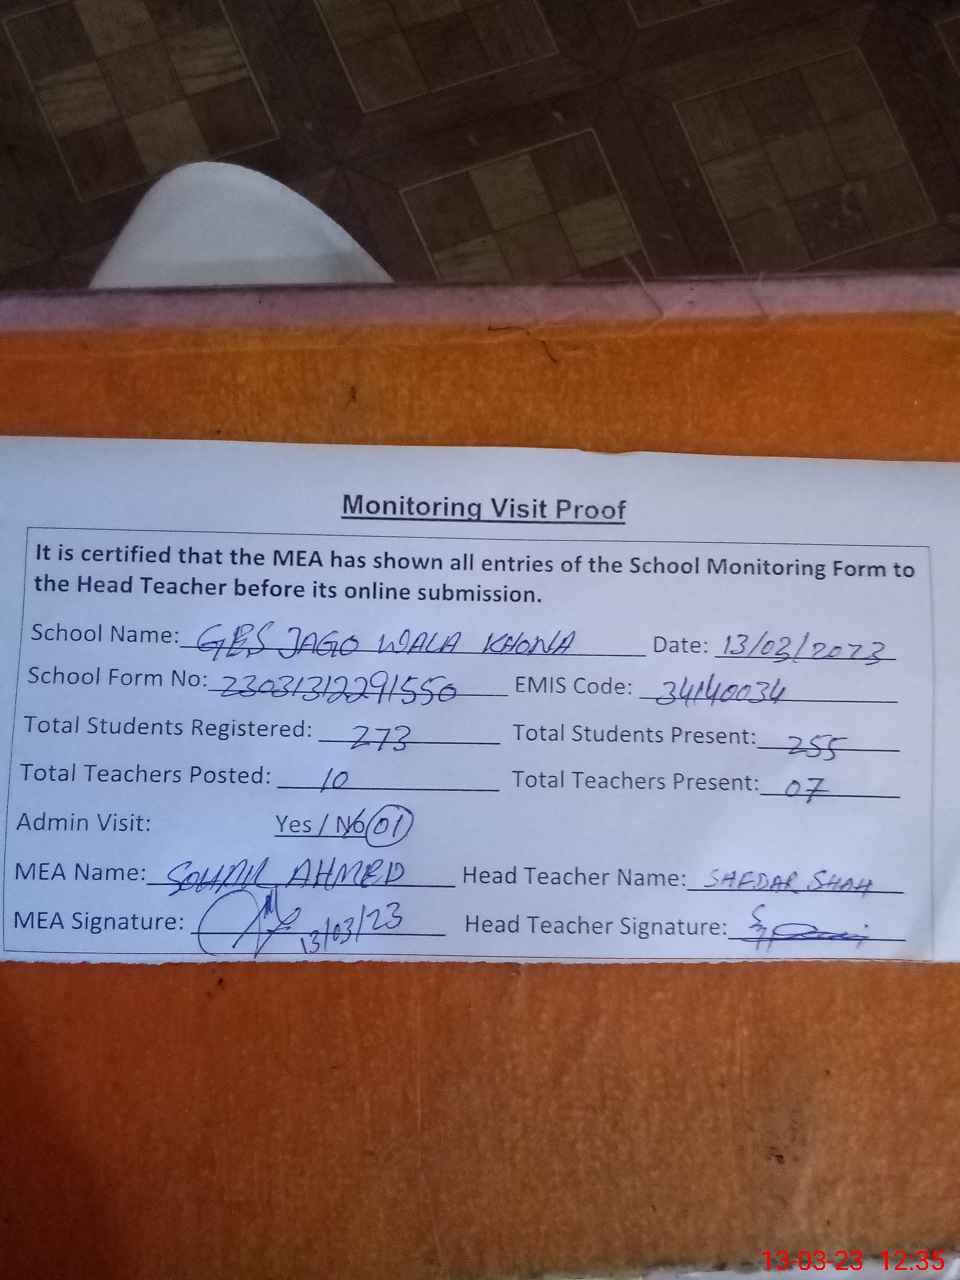 Monitoring Visit Proof
It is certified that the MEA has shown all entries of the School Monitoring Form to
the Head Teacher before its online submission.
School Name: GES JAGO WALA KHONA Date: 13/03/2023
School Form No: 23031312291550 EMIS Code: 34140034
Total Students Registered: 273 Total Students Present: 255
Total Teachers Posted: 10 Total Teachers Present: 07
Admin Visit: Yes / No 01
MEA Name: AHMED Head Teacher Name: SHAH
MEA Signature: 13/03/23 Head Teacher Signature:
13-03-23 12:35